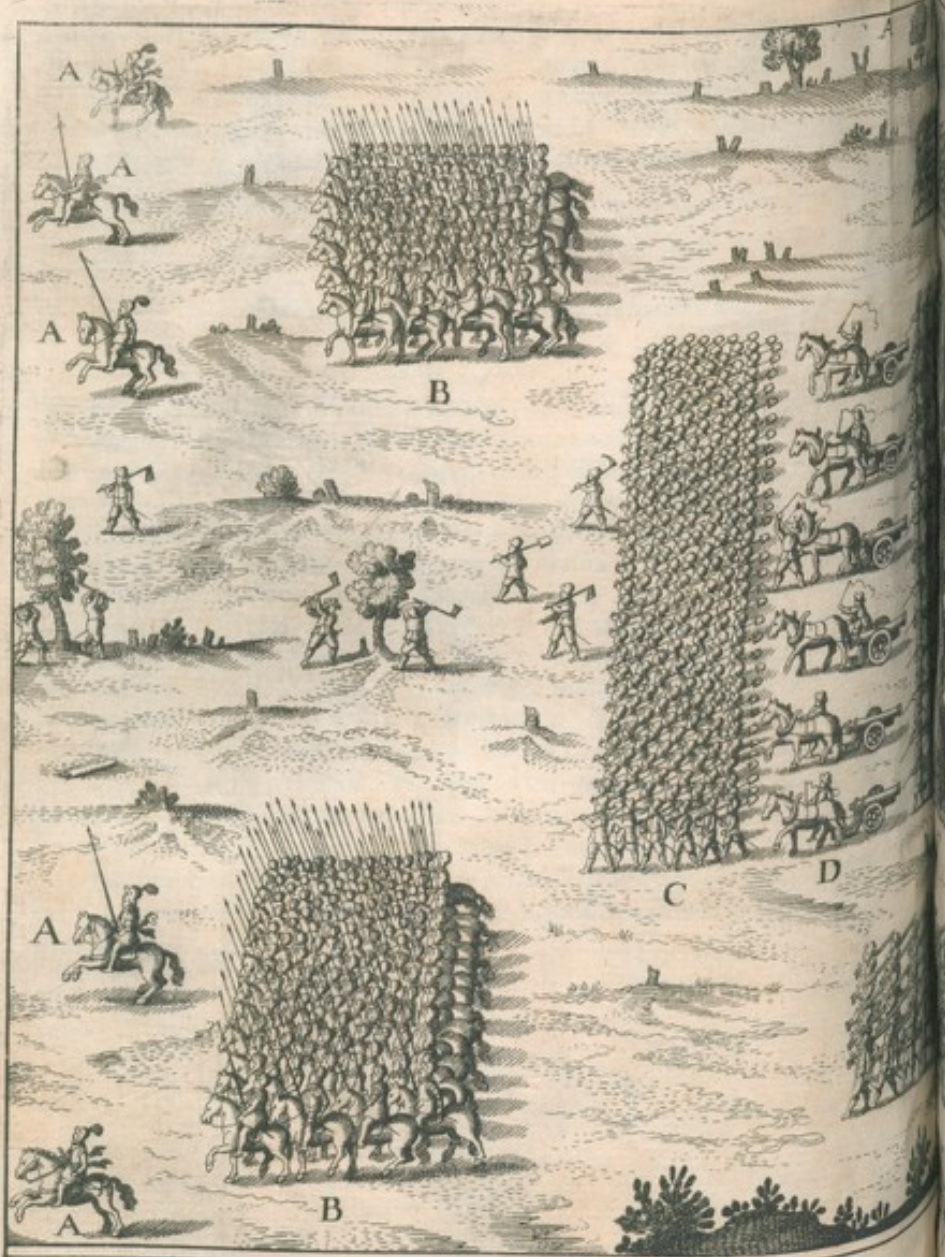 A
A
A
A
B
C
D
A
B
A